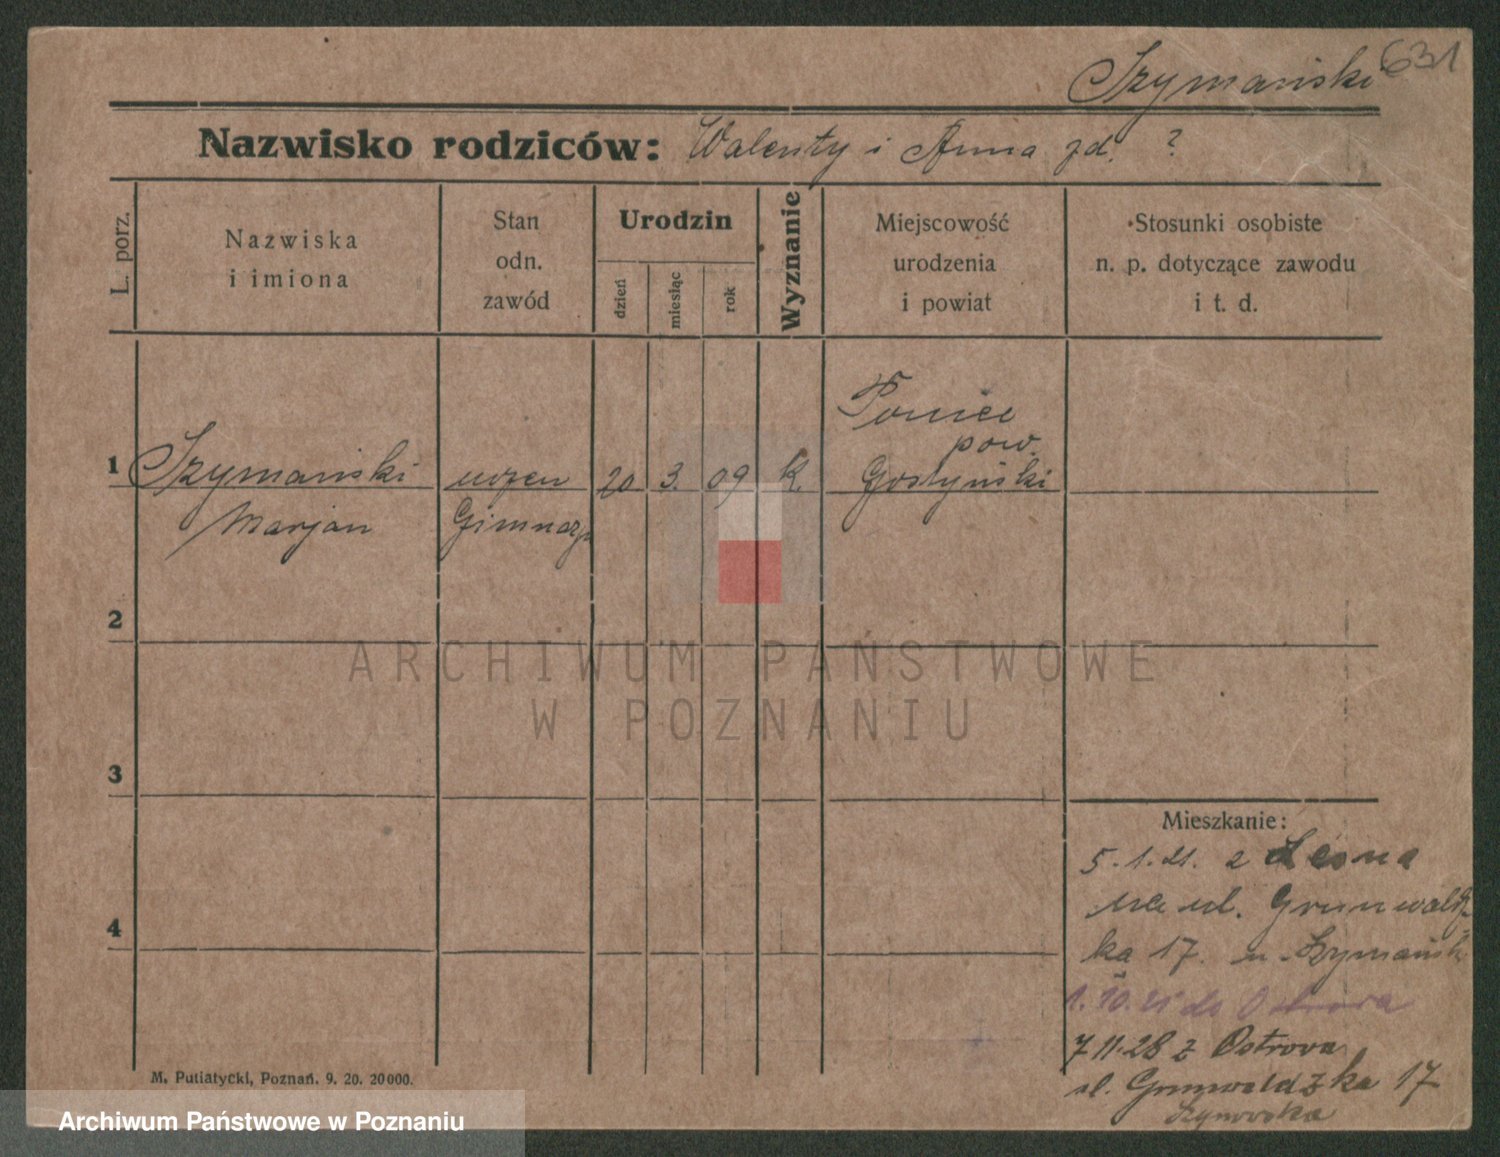 Szymański 631
Nazwisko rodziców: Walenty i Anna zd. ?
L. porz.
Nazwiska
i imiona
Stan
odn.
zawód
Urodzin
dzień
miesiąc
rok
Wyznanie
Miejscowość
urodzenia
i powiat
Stosunki osobiste
n. p. dotyczące zawodu
i t. d.
Poniec
pow.
1 Szymański uczen 20 3. 09 k. Gostyński
Marjan Gimnazj.
2
ARCHIWUM PAŃSTWOWE
W POZNANIU
3
4
Mieszkanie:
5.1.21. z Leszna
na ul. Grunwaldz-
ka 17. u Szymańsk
1.10.21 do Ostrowa
7 11.28 z Ostrowa
ul. Grunwaldzka 17
M. Putiatycki, Poznań. 9. 20. 20000.
Archiwum Państwowe w Poznaniu